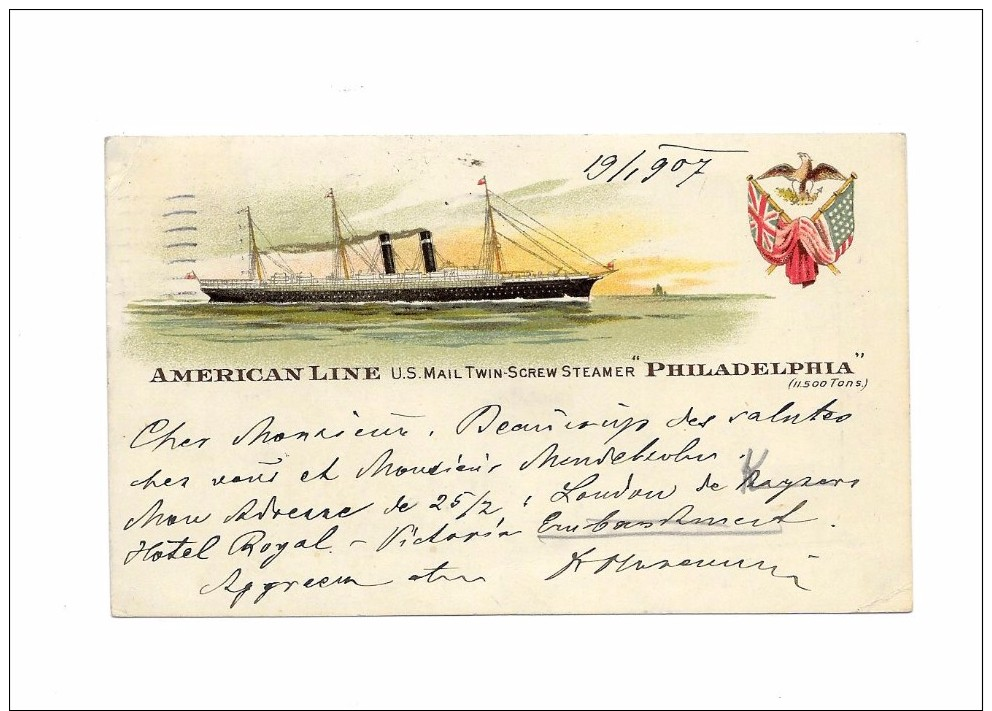 19/1 907
AMERICAN LINE U.S. MAIL TWIN-SCREW STEAMER "PHILADELPHIA"
(11.500 Tons.)
Cher Monsieur, Beaucoup des salutes
cher vous et Monsieur Mendelsohn.
Mon Adresse de 25/2 : London de Kaysers
Hotel Royal. - Victoria Embankment.